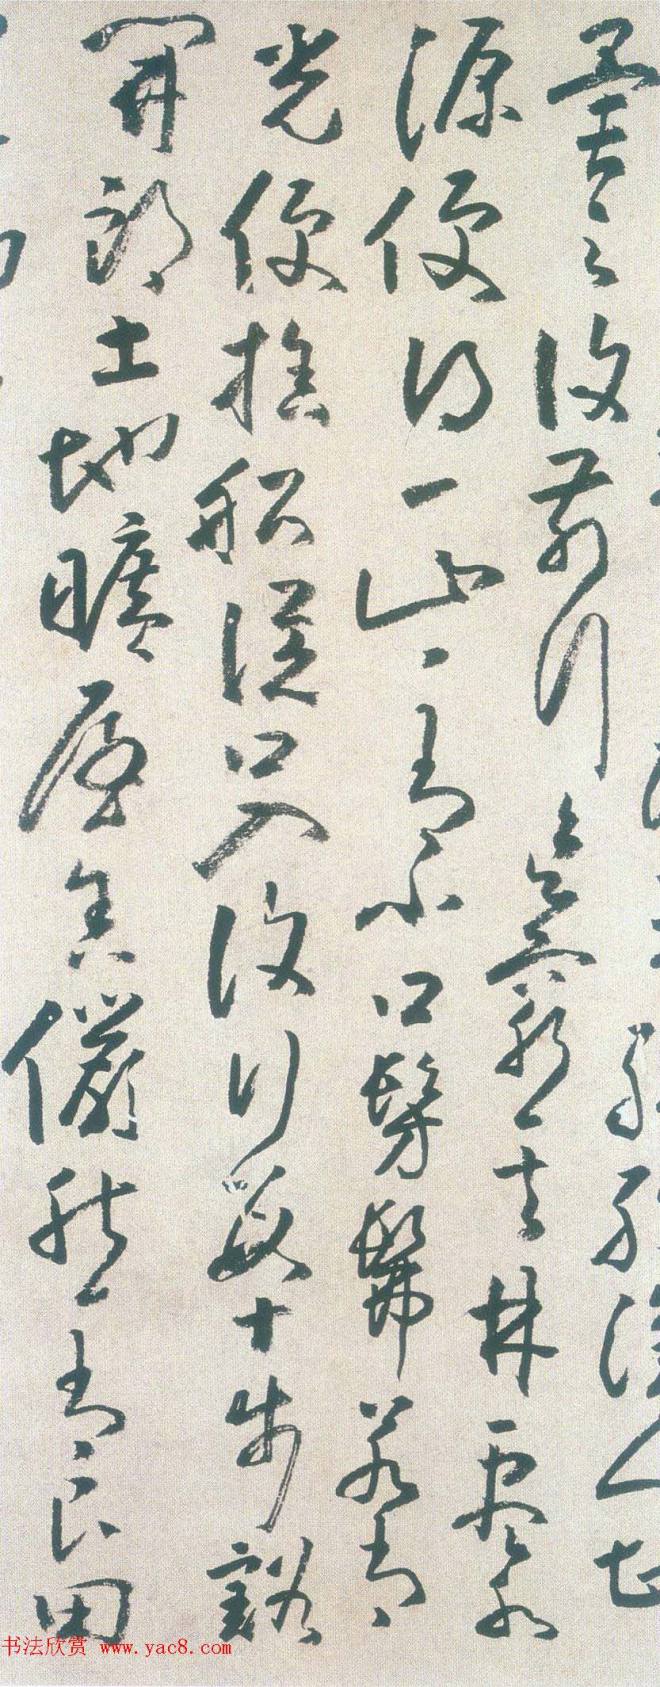 繽紛漁人甚
異之復前行欲窮其林盡水
源便得一山〻有小口髣髴若有
光便捨船從口入復行數十步豁
開朗土地曠屋舍儼然有良田
书法欣赏 www.yac8.com